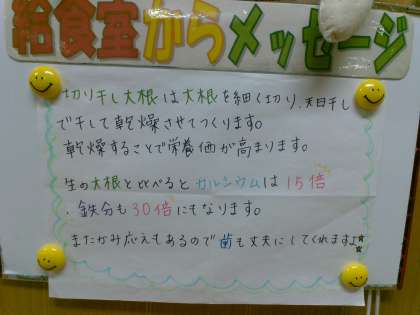 給食室からメッセージ
切り干し大根は大根を細く切り、天日干し
で干して乾燥させてつくります。
乾燥することで栄養価が高まります。
生の大根と比べるとカルシウムは15倍
、鉄分も30倍にもなります。
またかみ応えもあるので歯も丈夫にしてくれます♪